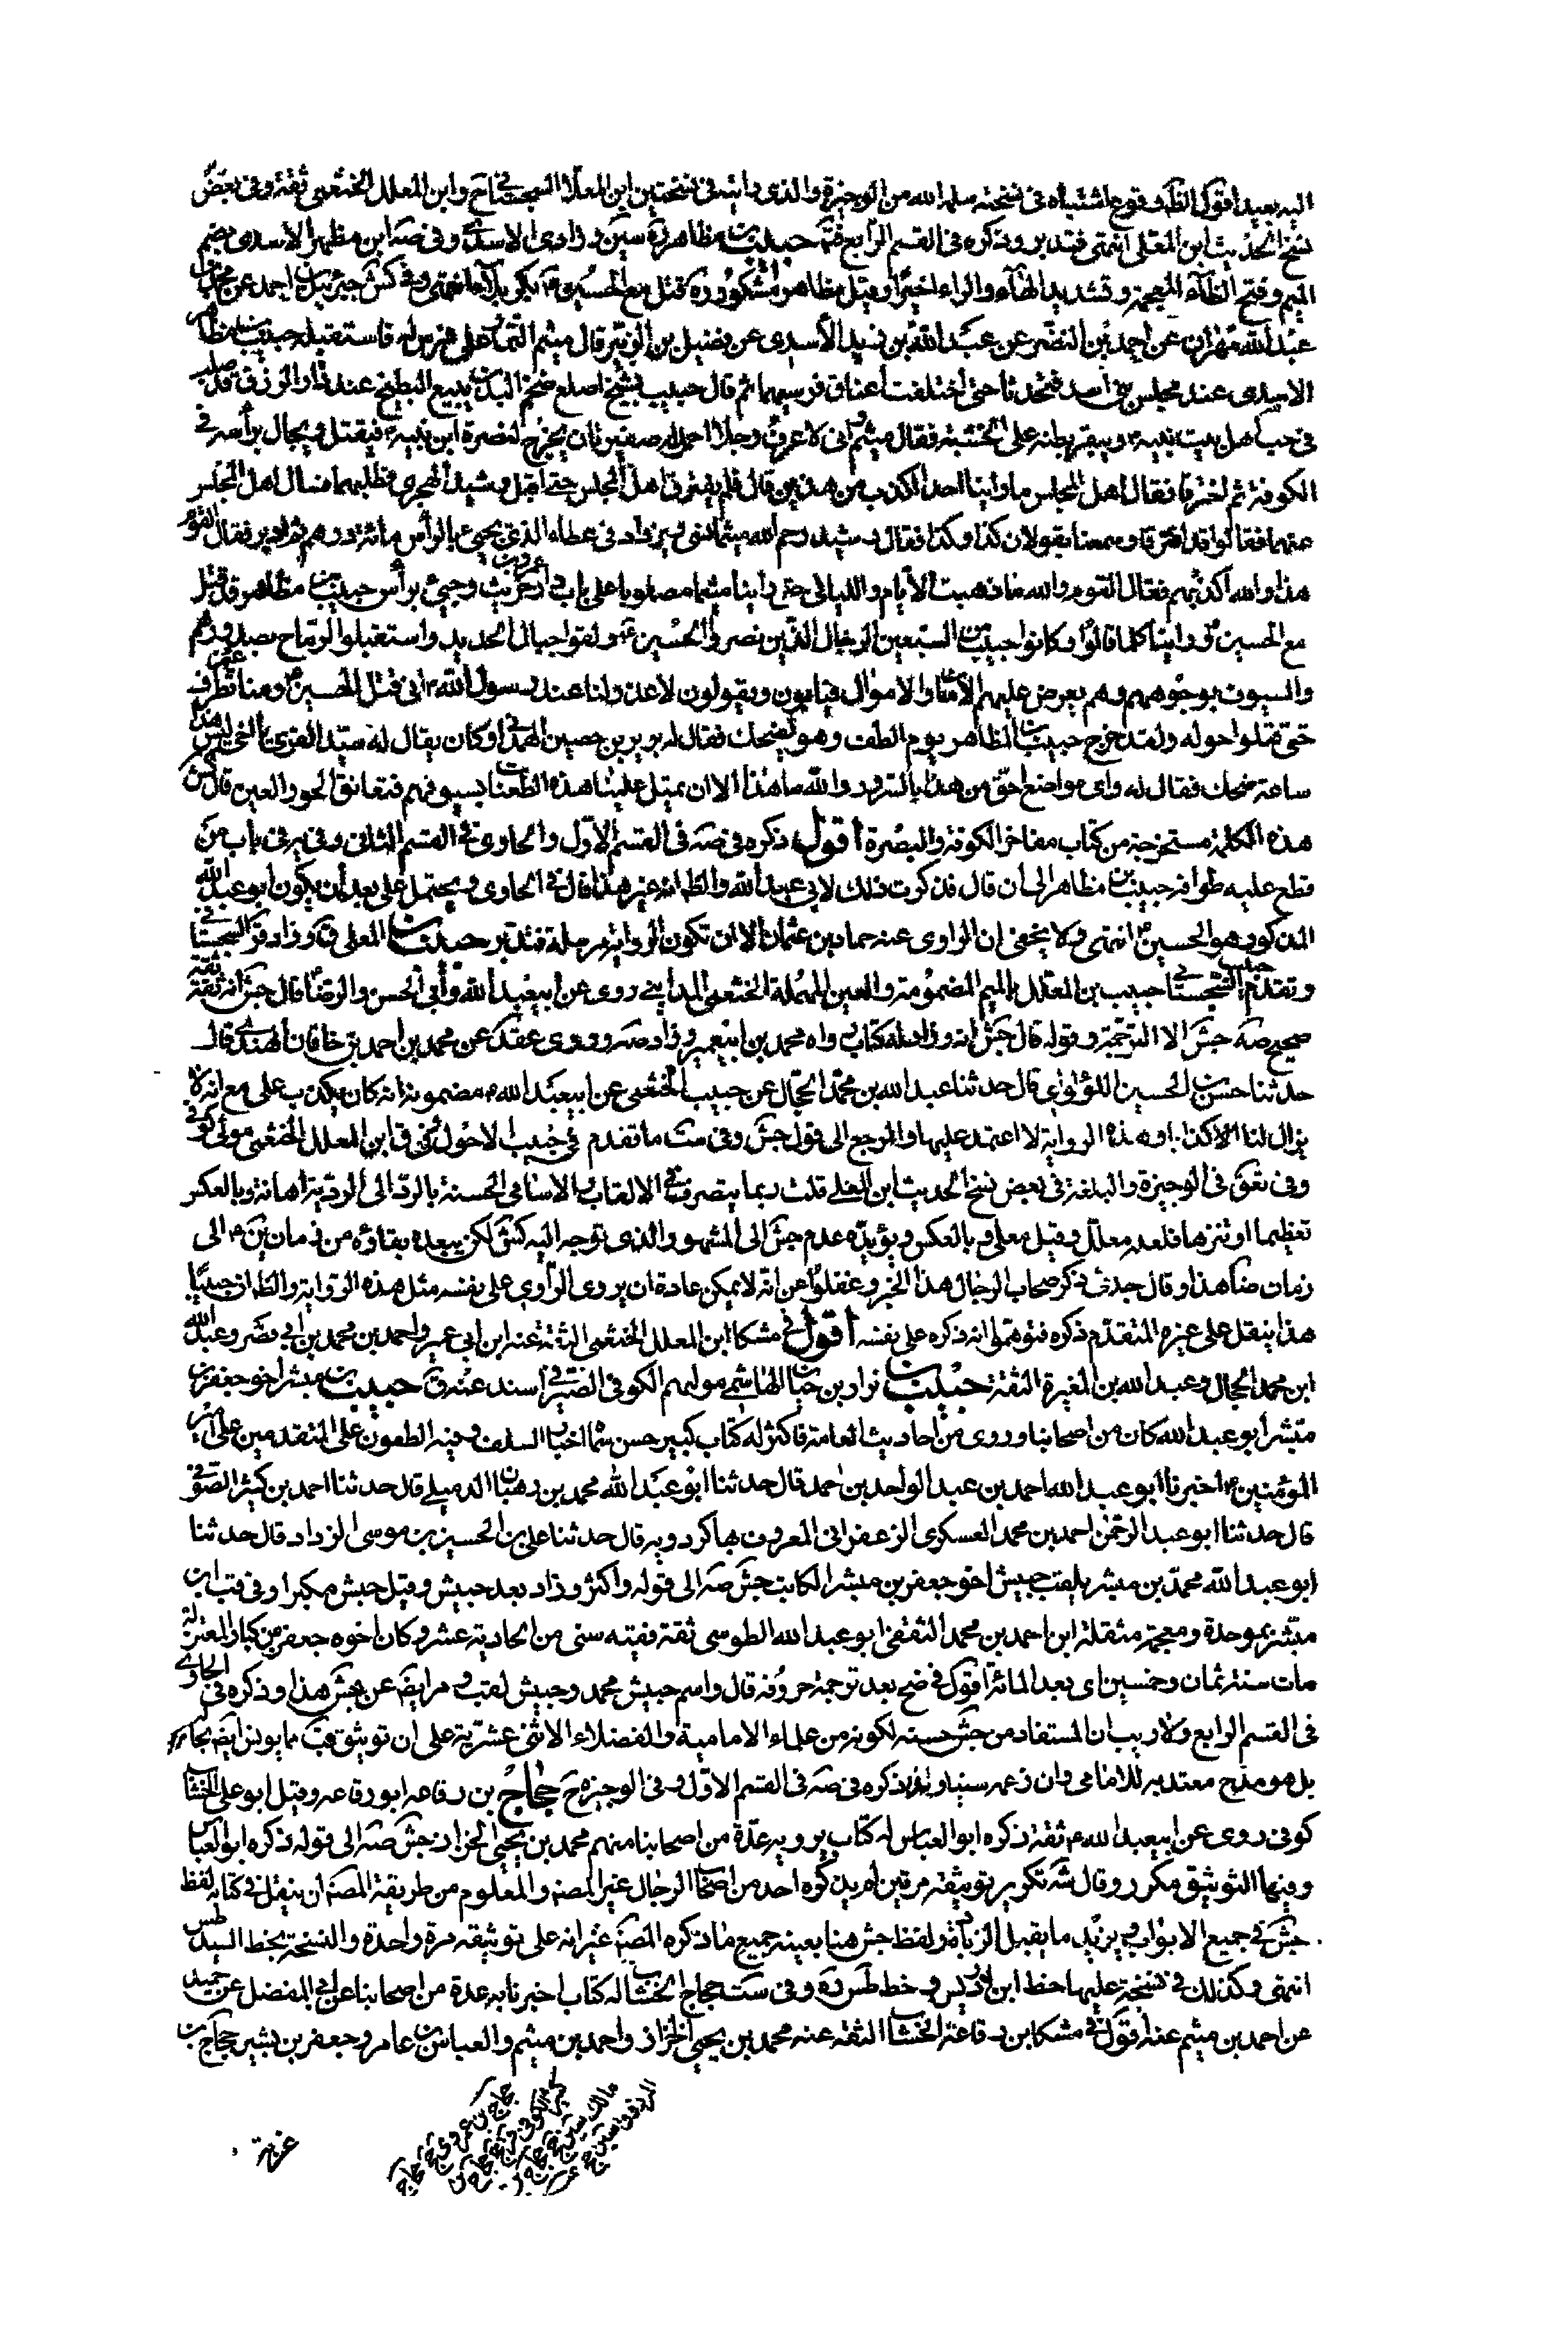 اليه بعيد أقول الظاهر وقوع اشتباه فى نسخته سلمه الله من الوجيزة والذى رايته فى نسختين ابن المعلا السجستانى ح وابن المعلل الخثعمى ثقة وفى بعض
نسخ الحديث ابن المعلى انتهى فتدبر وذكره فى القسم الرابع فتم حبيب بن مظاهر ة سين و زاد ى الاسدى وفى صه ابن مظهر الاسدى بضم
الميم وفتح الظاء المعجمة وتشديد الهاء والراء اخيرا وقيل مظاهر مشكور ره قتل مع الحسين ع بكربلا انتهى وفى كش جبرئيل بن احمد عن محمد بن
عبد الله بن مهران عن احمد بن النضر عن عبد الله بن يزيد الأسدى عن فضيل بن الزبير قال ميثم التمار على فرس له فاستقبله حبيب بن مظاهر
الاسدى عند مجلس بنى أسد فتحدثا حتى اختلفت أعناق فرسيهما ثم قال حبيب بشيخ اصلع ضخم البطن يبيع البطيخ عند دار الرزق قد صلب
فى حب اهل بيت نبيه ويبقر بطنه على الخشبة فقال ميثم وانى لاعرف رجلا احمر له صفيرتان يخرج لنصرة ابن بنت نبيه فيقتل ويجال برأسه فى
الكوفة ثم افترقا فقال اهل المجلس ما رأينا احدا اكذب من هذين قال فلم يفترق اهل المجلس حتى اقبل رشيد الهجرى فطلبهما فسال اهل المجلس
عنهما فقالوا قد افترقا وسمعناهما يقولان كذا وكذا فقال رشيد رحم الله ميثما نسى ويزاد فى عطاء الذى يجئ بالرأس مائة درهم ثم ادبر فقال القوم
هذا والله أكذبهم فقال القوم والله ما ذهبت الأيام والليالى حتى رأينا ميثما مصلوبا على باب دار عمرو بن حريث وجيئ برأس حبيب بن مظاهر قد قتل
مع الحسين ع ورأينا كلما قالوا وكان حبيب من السبعين الرجال الذين نصروا الحسين ع ولقوا جبال الحديد واستقبلوا الرماح بصدورهم
والسيوف بوجوههم وهم يعرض عليهم الأمان والاموال فيأبون ويقولون لا عذر لنا عند رسول الله ان قتل الحسين ومنا عين تطرف
حتى قتلوا حوله ولقد خرج حبيب بن مظاهر يوم الطف وهو يضحك فقال له برير بن حصين الهمدانى وكان يقال له سيد القراء يا اخى ليس هذه
ساعة ضحك فقال له واى موضع احق من هذا بالسرور والله ما هذا الا ان يميل علينا هذه الطغاة بسيوفهم فنعانق الحور العين قال كش
هذه الكلمة مستخرجة من كتاب مفاخر الكوفة والبصرة أقول ذكره فى صه فى القسم الاول والحاوى فى القسم الثانى وفى ير فى باب من
قطع عليه طوافه حبيب بن مظاهر الى ان قال فذكرت ذلك لابى عبد الله والظاهر انه غير هذا قال فى الحاوى ويحتمل على بعد أن يكون ابو عبد الله
المذكور هو الحسين ع انتهى ولا يخفى ان الراوى عنه حماد بن عثمان الا ان تكون الرواية مرسلة فتدبر حبيب بن المعلى ق و زاد قر السجستانى
وتقدم السجستانى حبيب بن المعلل بالميم المضمومة والعين المهملة الخثعمى المداينى روى عن أبى عبد الله وأبى الحسن والرضا قال جش انه ثقة ثقة
صحيح صه جش الا الترجمة وقوله قال جش انه و زاد له كتاب رواه محمد بن ابى عمير و زاد صه وروى عقد عن محمد بن احمد بن خاقان النهدى قال
حدثنا حسن بن الحسين اللؤلؤى قال حدثنا عبد الله بن محمد الحجال عن حبيب الخثعمى عن ابى عبد الله مضمونه انه كان يكذب على مع انه لا
يزال لنا الا كذابا وهذه الرواية لا اعتمد عليها والمرجع الى قول جش وفى ست ما تقدم فى حبيب الاحول وفى ق ابن المعلل الخثعمى مولى كوفى
وفى تعق فى الوجيزة والبلغة فى بعض نسخ الحديث ابن المعلى قلت ربما يتصرف فى الالقاب والاسامى الحسنة بالرد الى الردية اهانة وبالعكس
تعظيما او تنزها فلعله معلل وقيل معلى او بالعكس ويؤيده عدم جش الى المشهور والذى توجه اليه كش لكن يبعده بقاؤه من زمان ين الى
زمان ضا هذا وقال جدى ذكر صحاب الرجال هذا الخبر وغفلوا عن انه لا يمكن عادة ان يروى الراوى على نفسه مثل هذه الرواية والظاهر ان حبيبا
هذا ينقل على غيره المتقدم ذكره فتوهموا انه ذكره على نفسه أقول فى مشكا ابن المعلل الخثعمى الثقة عنه ابن ابى عمير واحمد بن محمد بن ابى نصر وعبد الله
ابن محمد الحجال وعبد الله بن المغيرة الثقة حبيب بن نزار بن حيان الهاشمى مولهم الكوفى الصيرفى أسند عنه ق حبيش بن مبشر اخو جعفر بن
مبشر أبو عبد الله كان من اصحابنا وروى من احاديث العامة فاكثر له كتاب كبير حسن سماه اخبار السلف وفيه الطعون على المتقدمين على أمير
المؤمنين اخبرنا ابو عبد الله احمد بن عبد الواحد بن احمد قال حدثنا ابو عبد الله محمد بن وهبان الدبيلى قال حدثنا احمد بن كثير الصوفى
قال حدثنا ابو عبد الرحمن احمد بن محمد العسكرى الزعفرانى المعروف بماكردويه قال حدثنا على بن الحسين بن موسى الزراد قال حدثنا
ابو عبد الله محمد بن مبشر يلقب حبيش اخو جعفر بن مبشر الكاتب جش صه الى قوله واكثر و زاد بعد حبيش وقيل حبش مكبرا وفى قب ابن
مبشر بموحدة ومعجمة مثقلة ابن احمد بن محمد الثقفى ابو عبد الله الطوسى ثقة فقيه سنى من الحادية عشر وكان اخوه جعفر من كبار المعتزلة
مات سنة ثمان وخمسين اى بعد المائة أقول فى ضح بعد ترجمة حروفه قال واسم حبيش محمد وحبيش لقب ومر ايضا عن جش هذا وذكره فى الحاوى
فى القسم الرابع ولا ريب ان المستفاد من جش حسنه لكونه من علماء الامامية والفضلاء الاثنى عشرية على ان توثيق قب مما يونس ايضا بحاله
بل هو مدح معتد به للامامى وان زعمه سنيا ولذا ذكره فى صه فى القسم الاول وفى الوجيزة ح حجاج بن رفاعه ابو رفاعه وقيل ابو على الخشاب
كوفى روى عن ابى عبد الله ثقة ذكره ابو العباس له كتاب يرويه عدة من اصحابنا منهم محمد بن يحيى الخزاز جش صه الى قوله ذكره ابو العباس
وفيها التوثيق مكرر وقال شه تكرير توثيقه مرتين لم يذكره احد من اصحاب الرجال غير المصنف والمعلوم من طريقة المصنف ان ينقل فى كتابه لفظ
جش فى جميع الابواب ويزيد ما يقبل الزيادة ولفظ جش هنا بعينه جميع ما ذكره المصنف غير انه على توثيقه مرة واحدة والنسخة بخط السيد بن طس
انتهى وكذلك فى نسخة عليها خط ابن ادريس و خط طس ره وفى ست حجاج الخشاب له كتاب اخبرنا به عدة من اصحابنا عن ابى المفضل عن حميد
عن احمد بن ميثم عنه أقول فى مشكا ابن رفاعة الخشاب الثقة عنه محمد بن يحيى الخزاز واحمد بن ميثم والعباس بن عامر وجعفر بن بشير حجاج بن